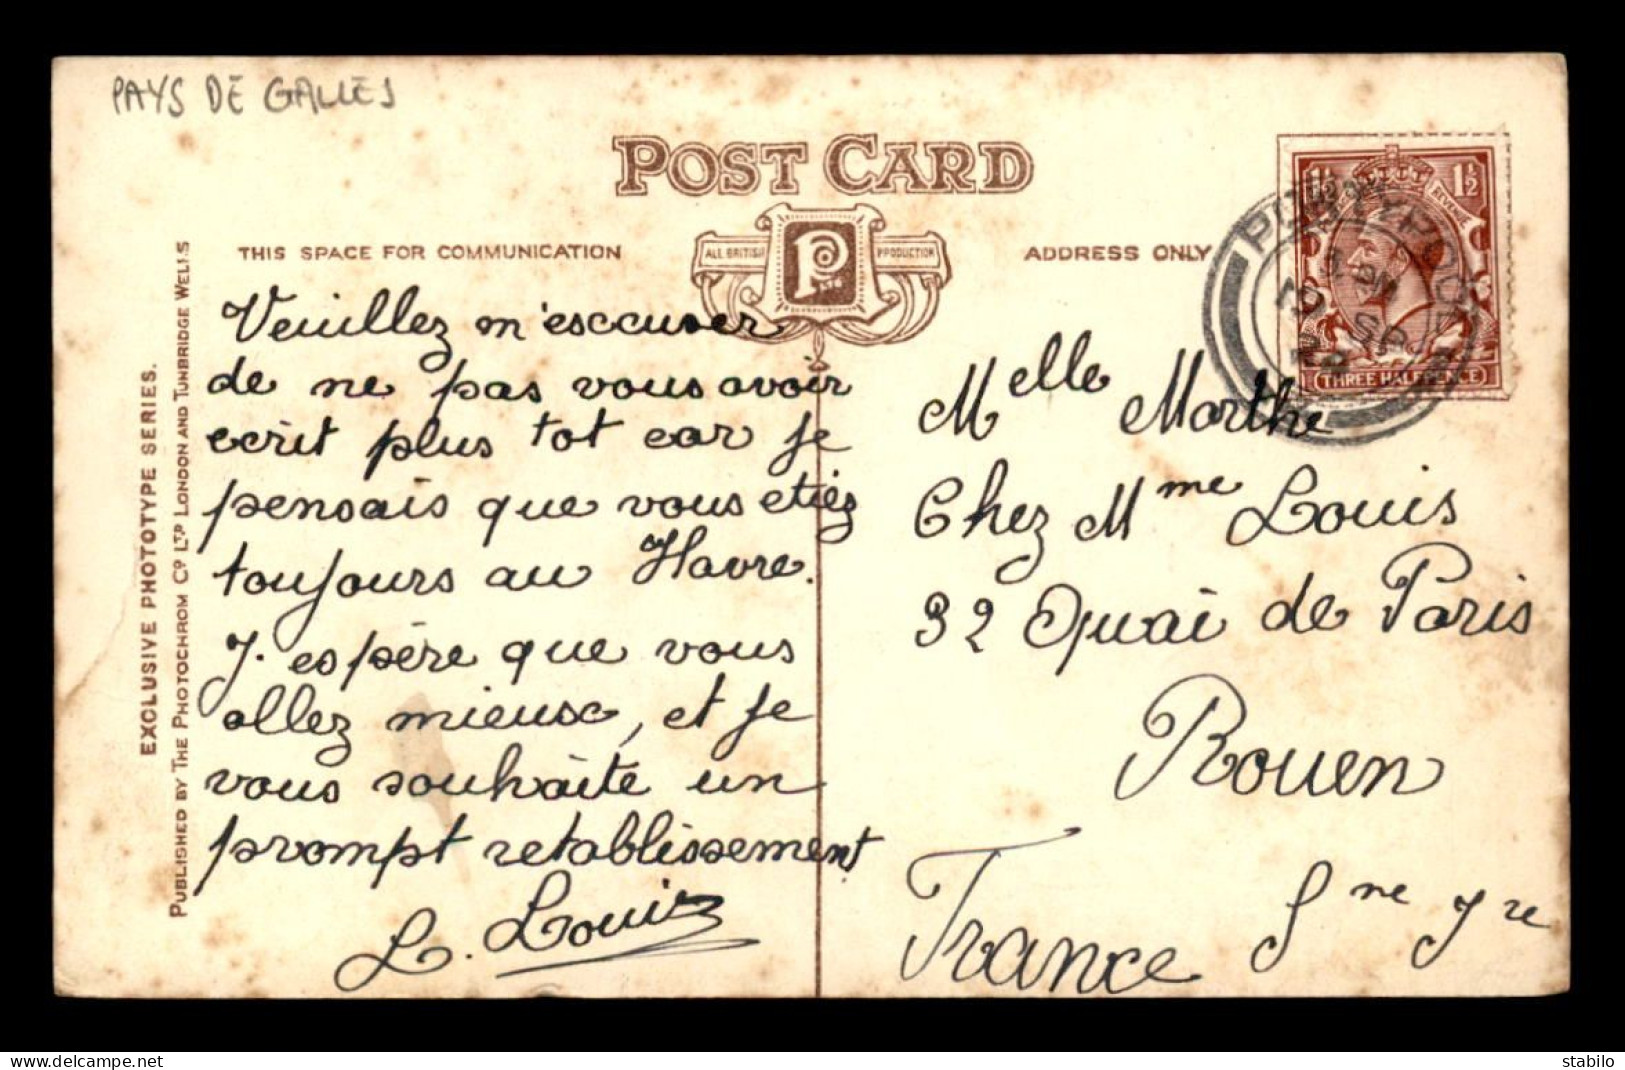 PAYS DE GALLES
POST CARD
THIS SPACE FOR COMMUNICATION
ALL BRITISH
PRODUCTION
ADDRESS ONLY
EXCLUSIVE PHOTOTYPE SERIES.
PUBLISHED BY THE PHOTOCHROM Co LTD LONDON AND TUNBRIDGE WELLS
Veuillez m'esccuser
de ne pas vous avoir
ecrit plus tot car je
pensais que vous etiez
toujours au Havre.
J. espère que vous
allez mieusc, et je
vous souhaite un
prompt retablissement
L. Louis
1½
1½
REVENUE
THREE HALF PENCE
PONTYPOOL
19 SP
22
Melle Marthe
Chez Mme Louis
32 Quai de Paris
Rouen
France Sne Jre
delcampe.net
stabilo